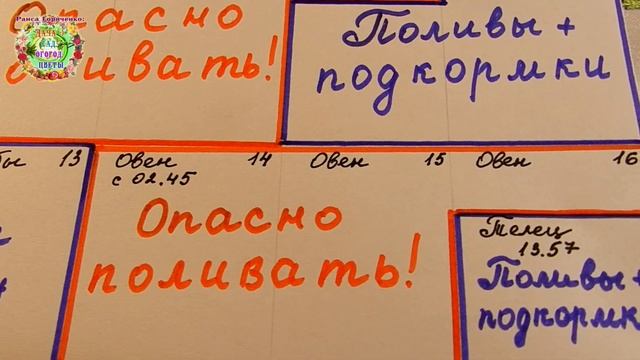 Раиса Горяченко:
ДАЧА
САД
ОГОРОД
ЦВЕТЫ
Опасно
Поливы +
подкормки
13 Овен 14 Овен 15 Овен 16
с 02.45
Опасно
поливать!
Телец
13.57
Поливы +
подкормк